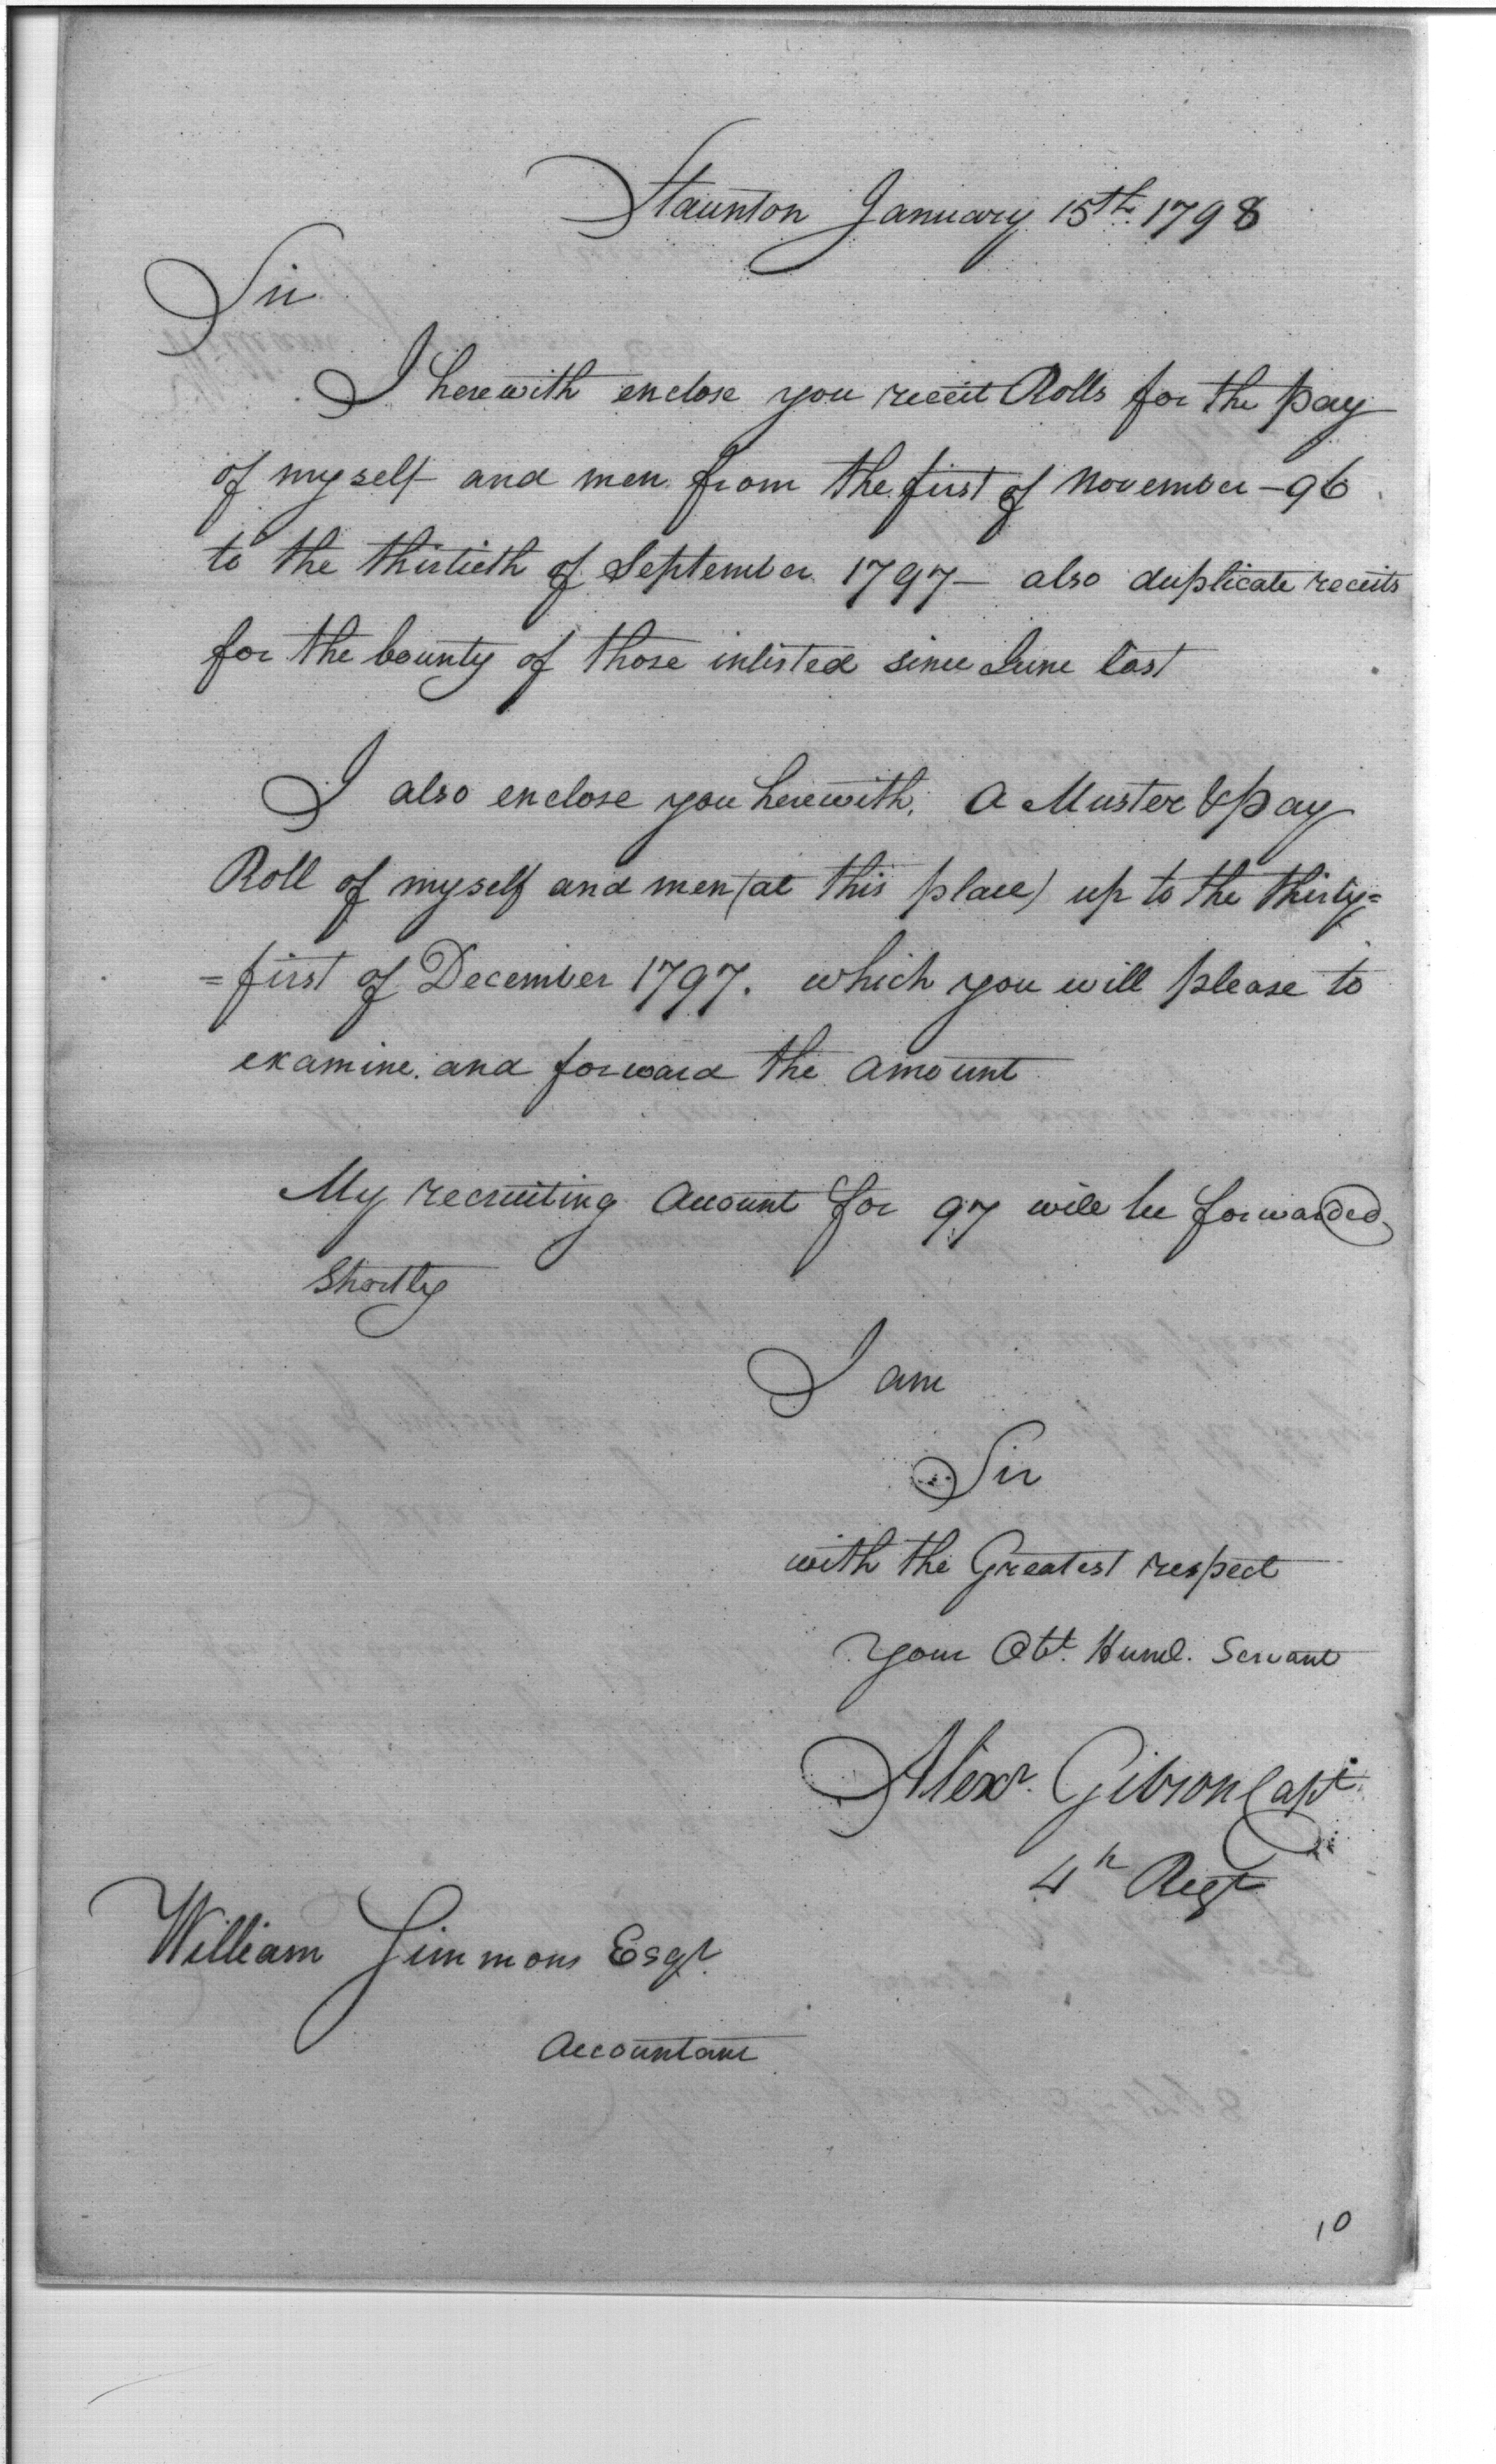 Staunton January 15th. 1798
Sir
I herewith enclose you receit Rolls for the pay
of myself and men from the first of November - 96
to the thirtieth of September 1797 - also duplicate receits
for the bounty of those inlisted since June last
I also enclose you herewith, a Muster & pay
Roll of myself and men (at this place) up to the thirty=
=first of December 1797. which you will please to
examine and forward the amount
My recruiting account for 97 will be forwarded
Shortly
I am
Sir
with the Greatest respect
your Obt. Huml. Servant
Alexr. Gibson Capt.
4th Regt
William Simmons Esqr.
Accountant
10